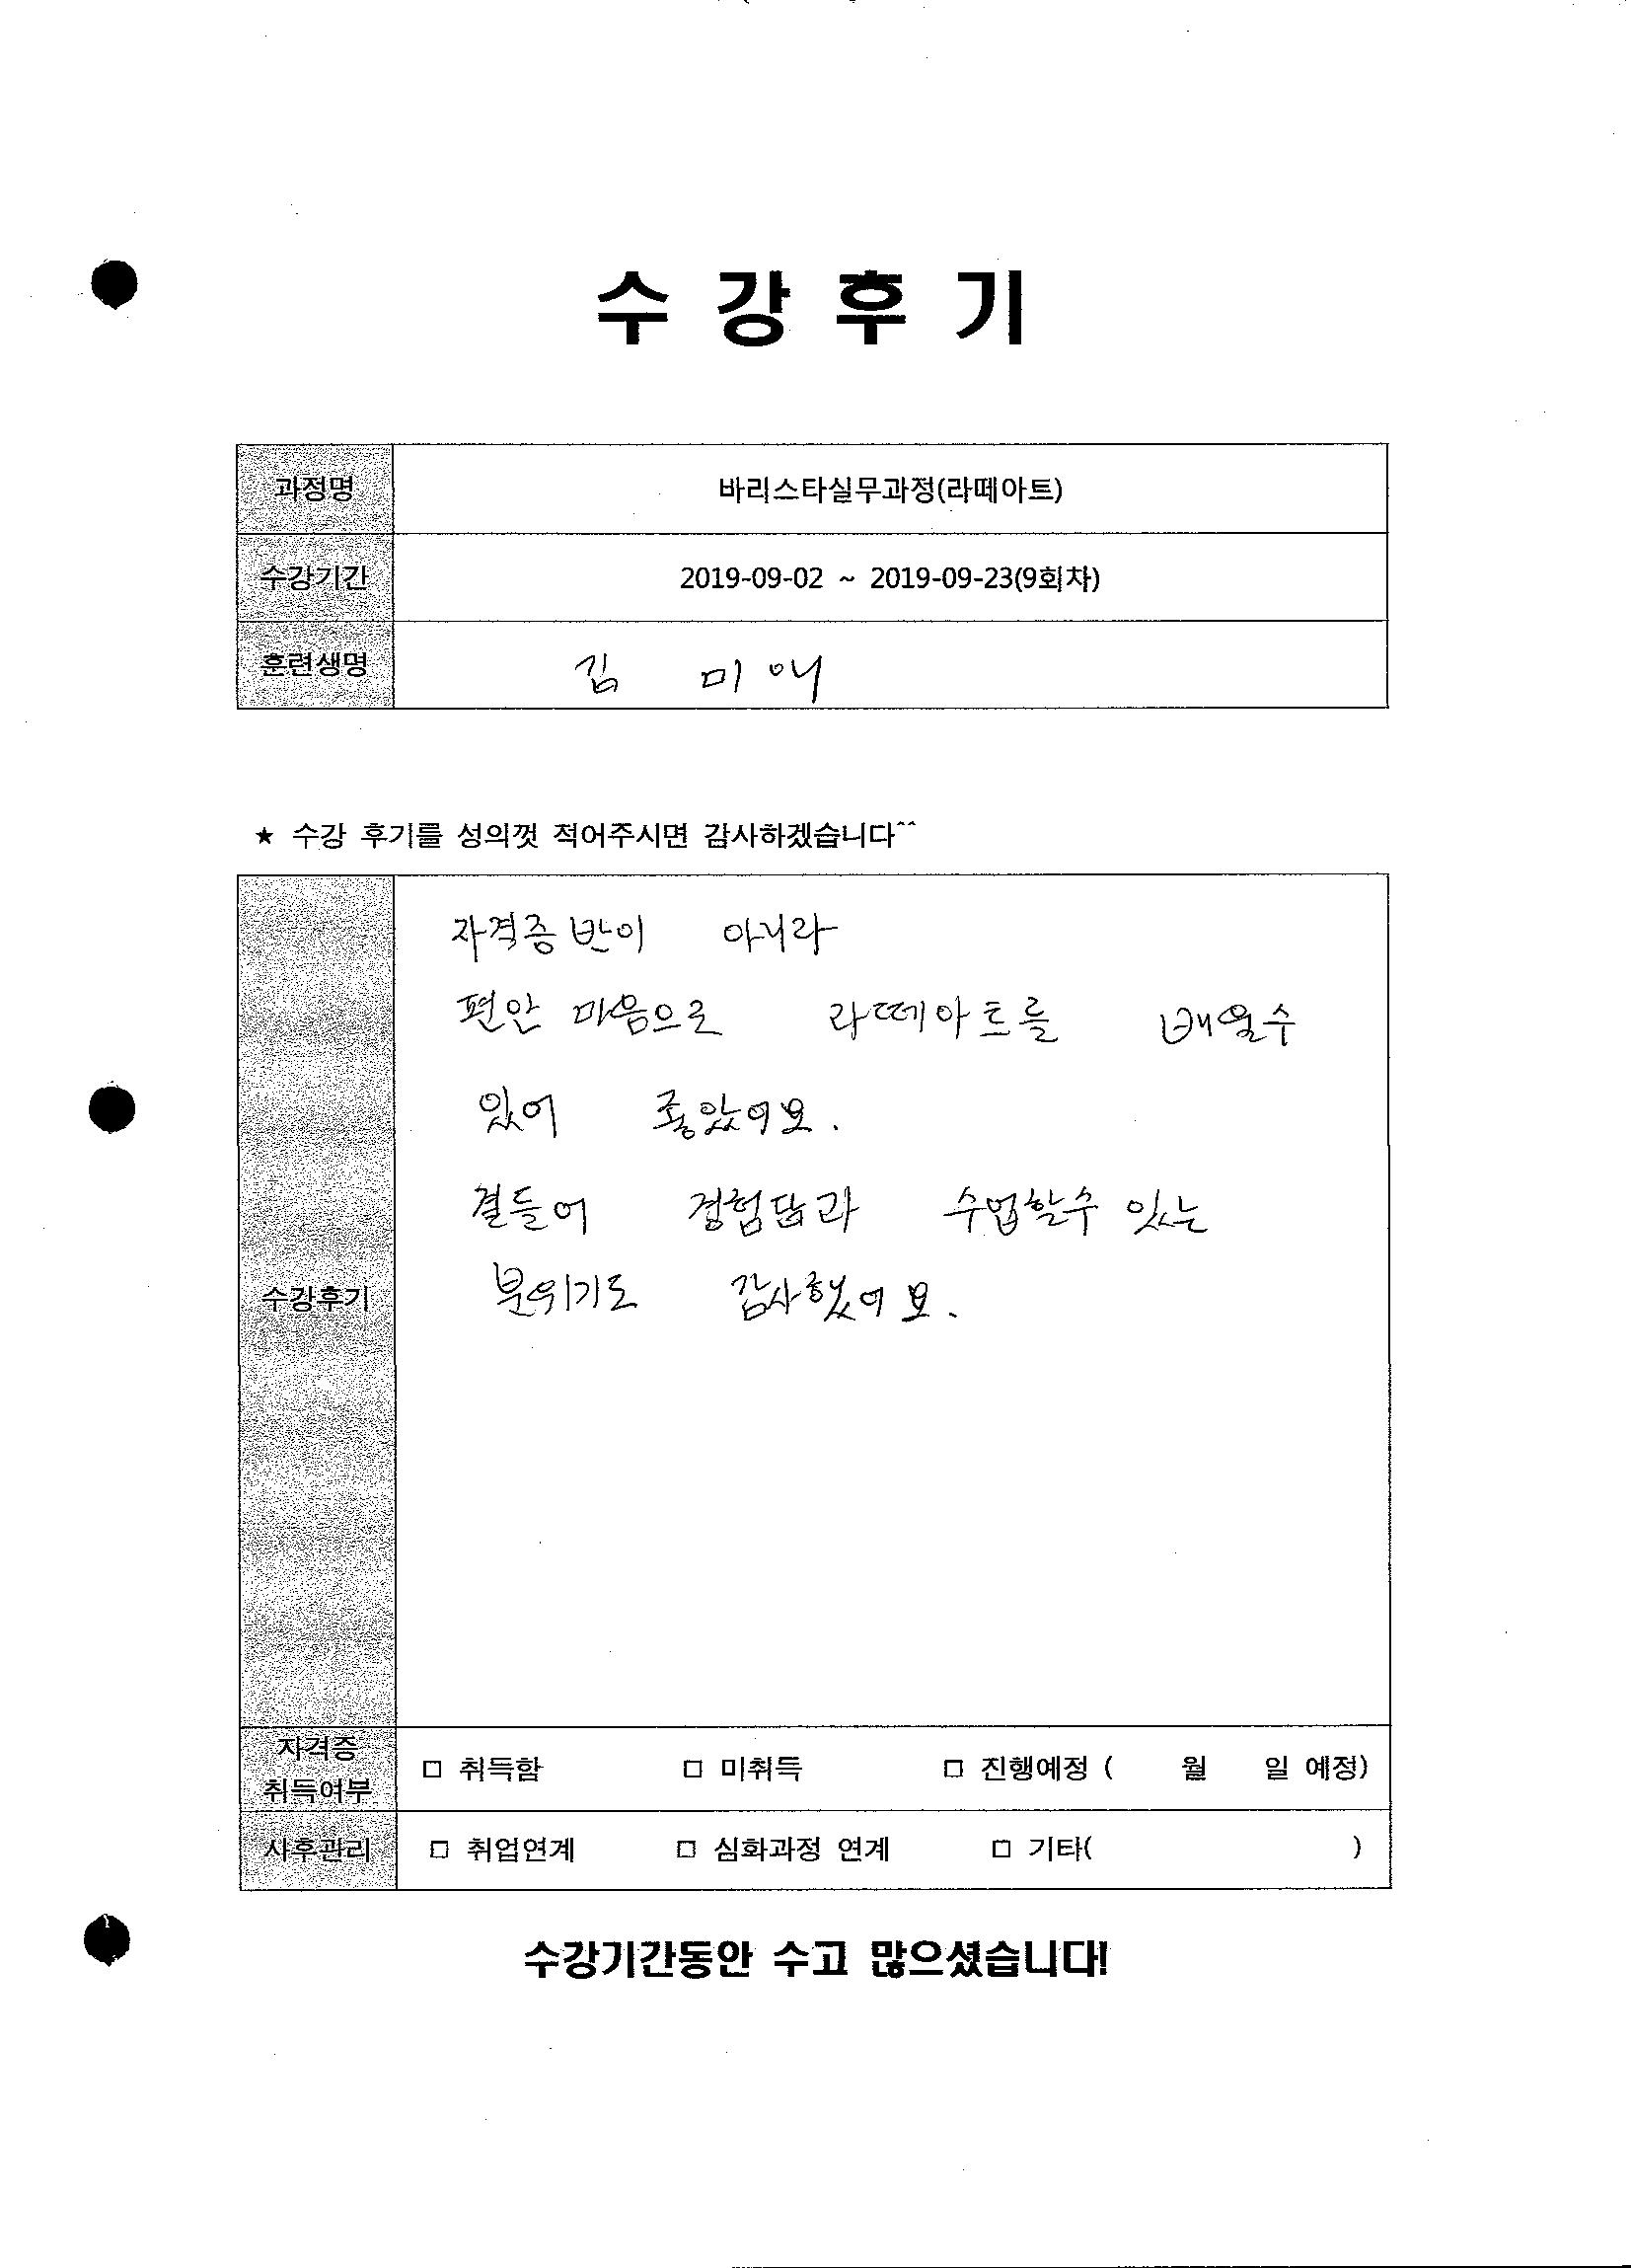 수 강 후 기
과정명 바리스타실무과정(라떼아트)
수강기간 2019-09-02 ~ 2019-09-23(9회차)
훈련생명 김 미애
★ 수강 후기를 성의껏 적어주시면 감사하겠습니다^^
수강후기
자격증반이 아니라
편안 마음으로 라떼아트를 배울수
있어 좋았어요.
곁들어 경험담과 수업할수 있는
분위기도 감사했어요.
자격증
취득여부
□ 취득함 □ 미취득 □ 진행예정 ( 월 일 예정)
사후관리 □ 취업연계 □ 심화과정 연계 □ 기타( )
수강기간동안 수고 많으셨습니다!